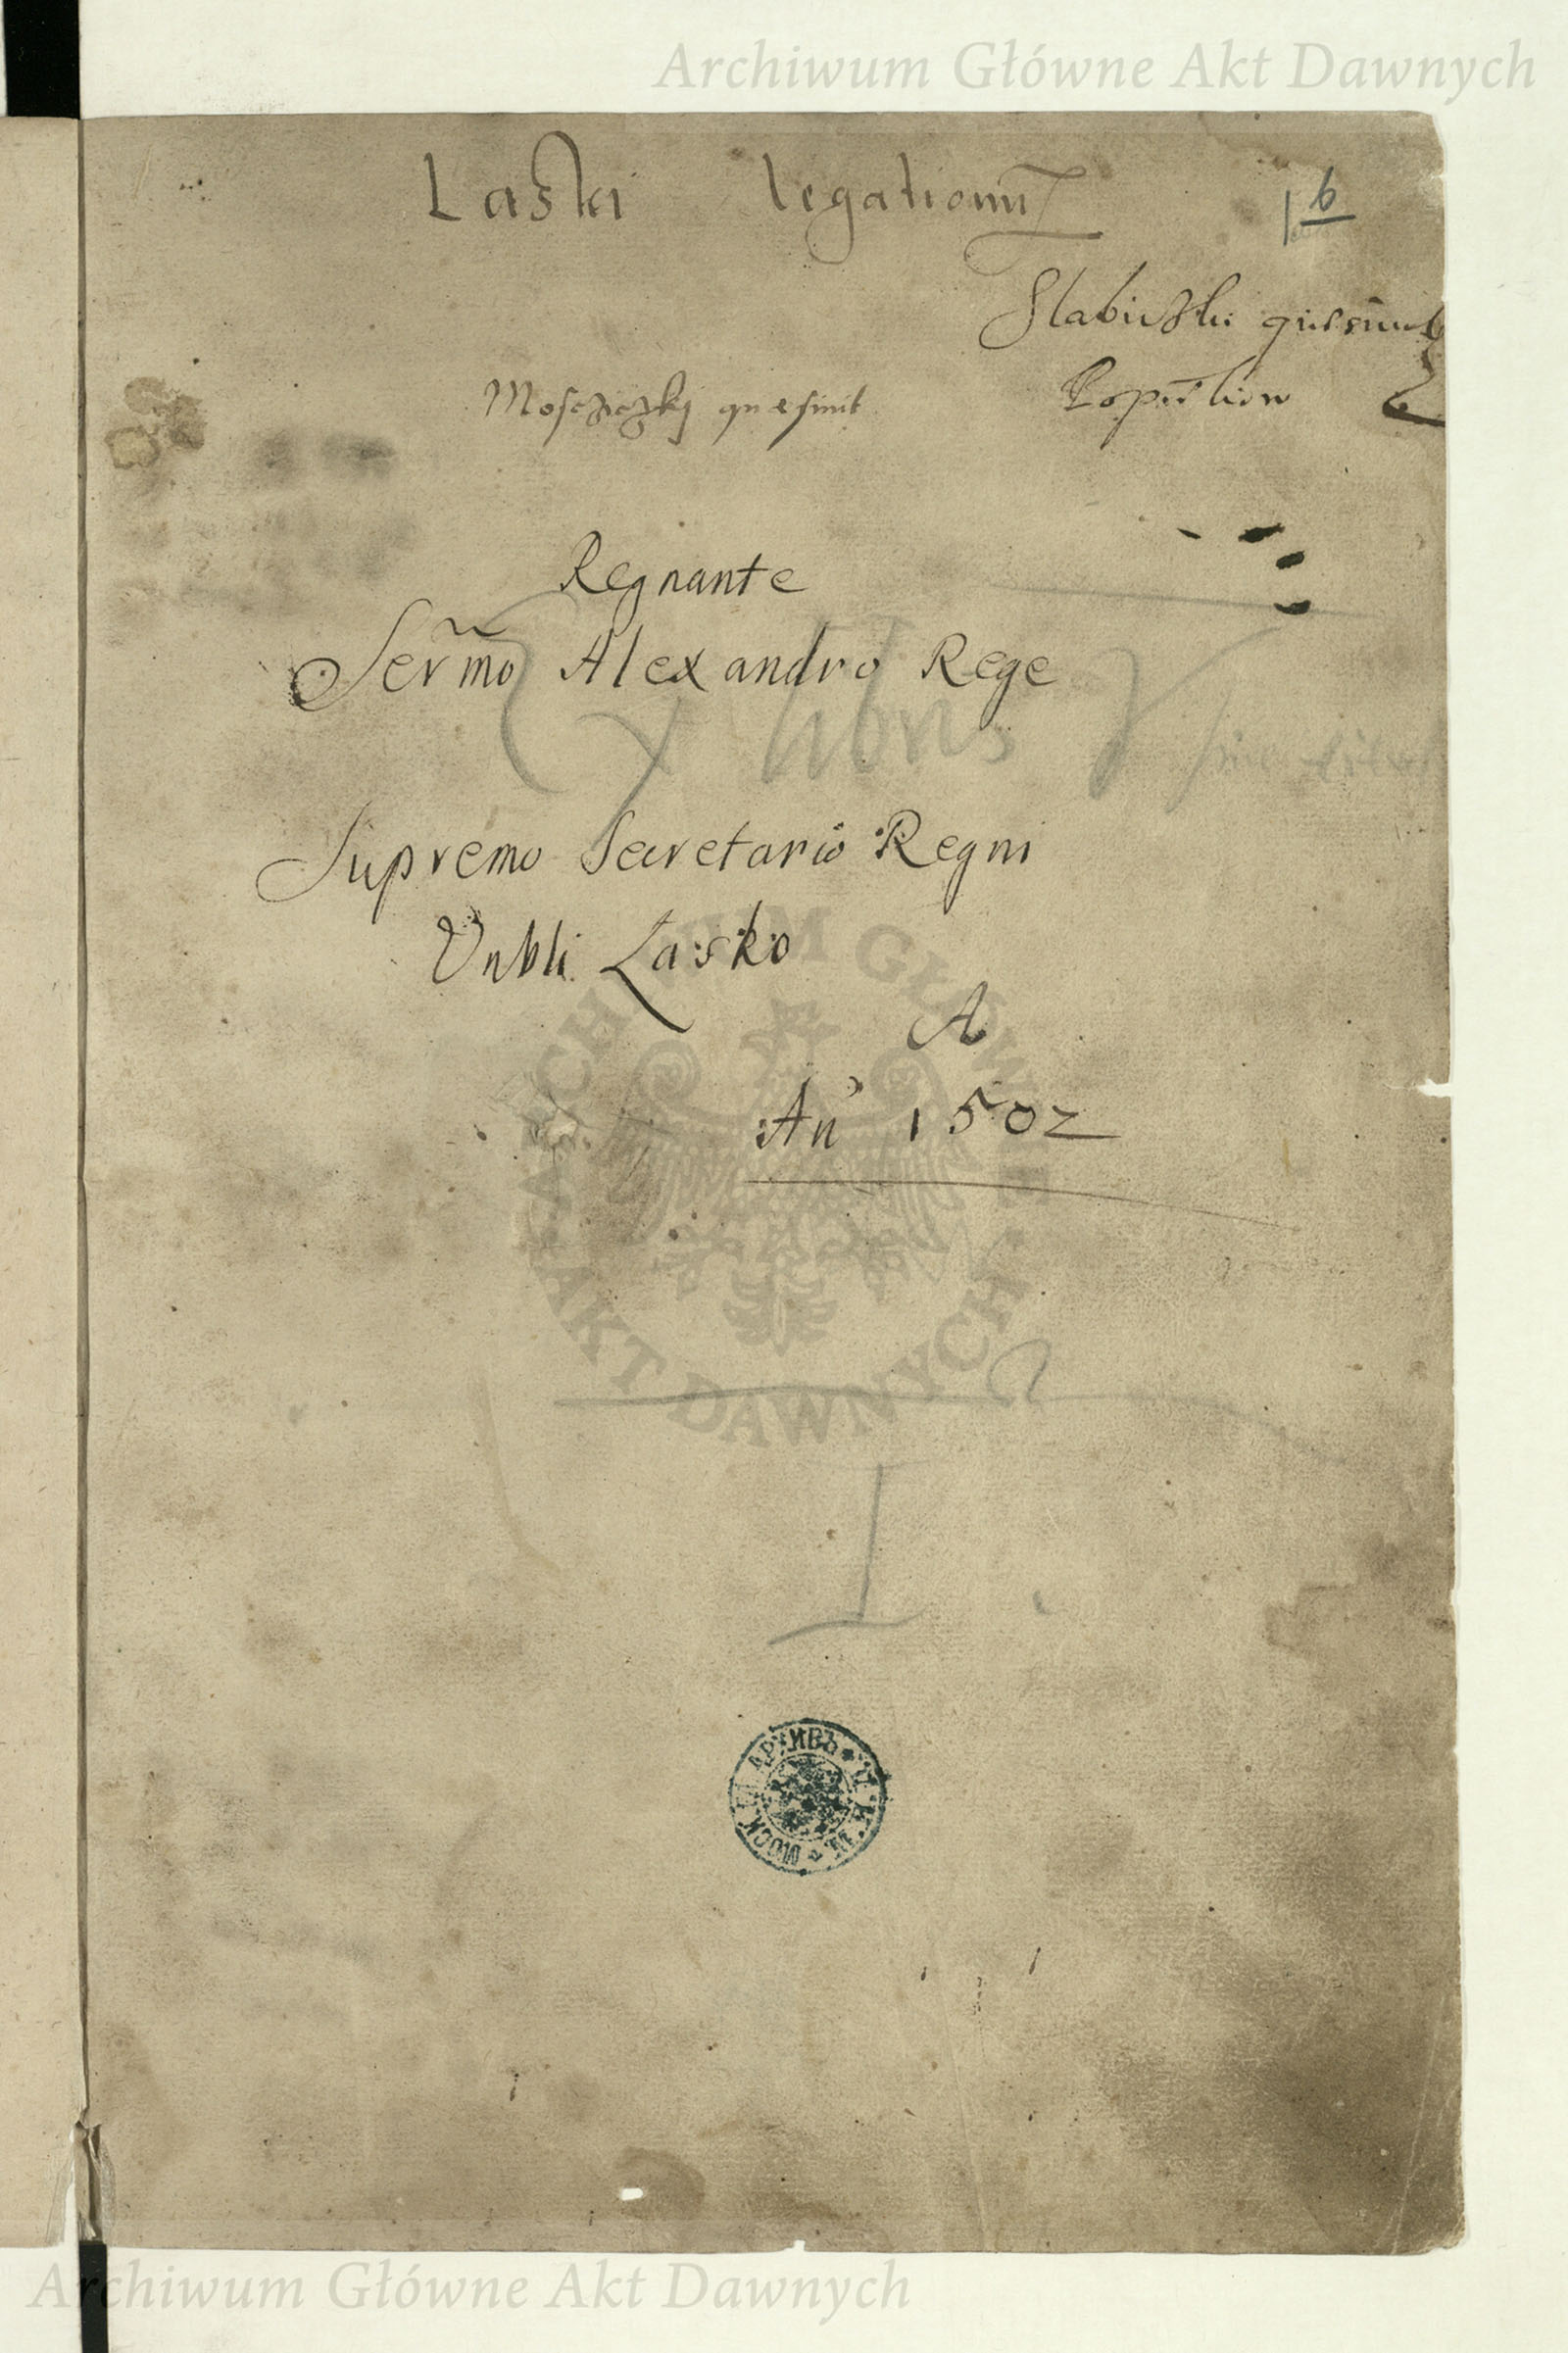 Archiwum Główne Akt Dawnych
Laski legationum
1 6
Slabiczki
Mosczyczkij quesivit
Regnante
Serm̃o Alexandro Rege
Ex libris
Supremo Secretario Regni
Vnbli Lasko
A
An̄ 1502
ARCHIWUM GŁÓWNE AKT DAWNYCH
I
АРХИВЪ
Archiwum Główne Akt Dawnych